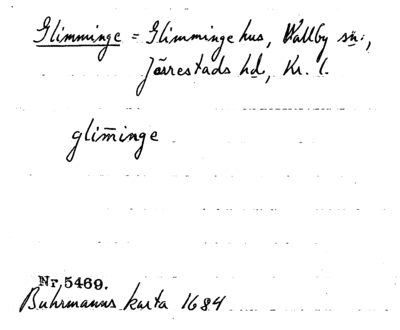 Glimminge = Glimminge hus, Wallby sn.,
Järrestads hd, Kr. l.
glim̄inge
Nr. 5469.
Buhrmanns karta 1684